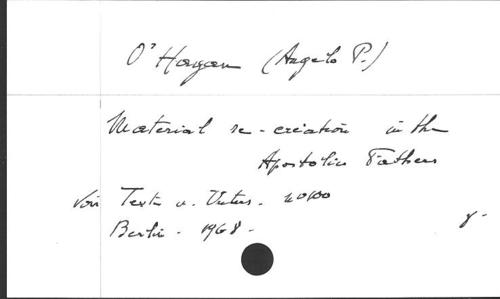 O'Hagan (Angelo P.)
Material re-creation in the
Apostolic Fathers
Voir Texte u. Unters. n°100
Berlin - 1968 -